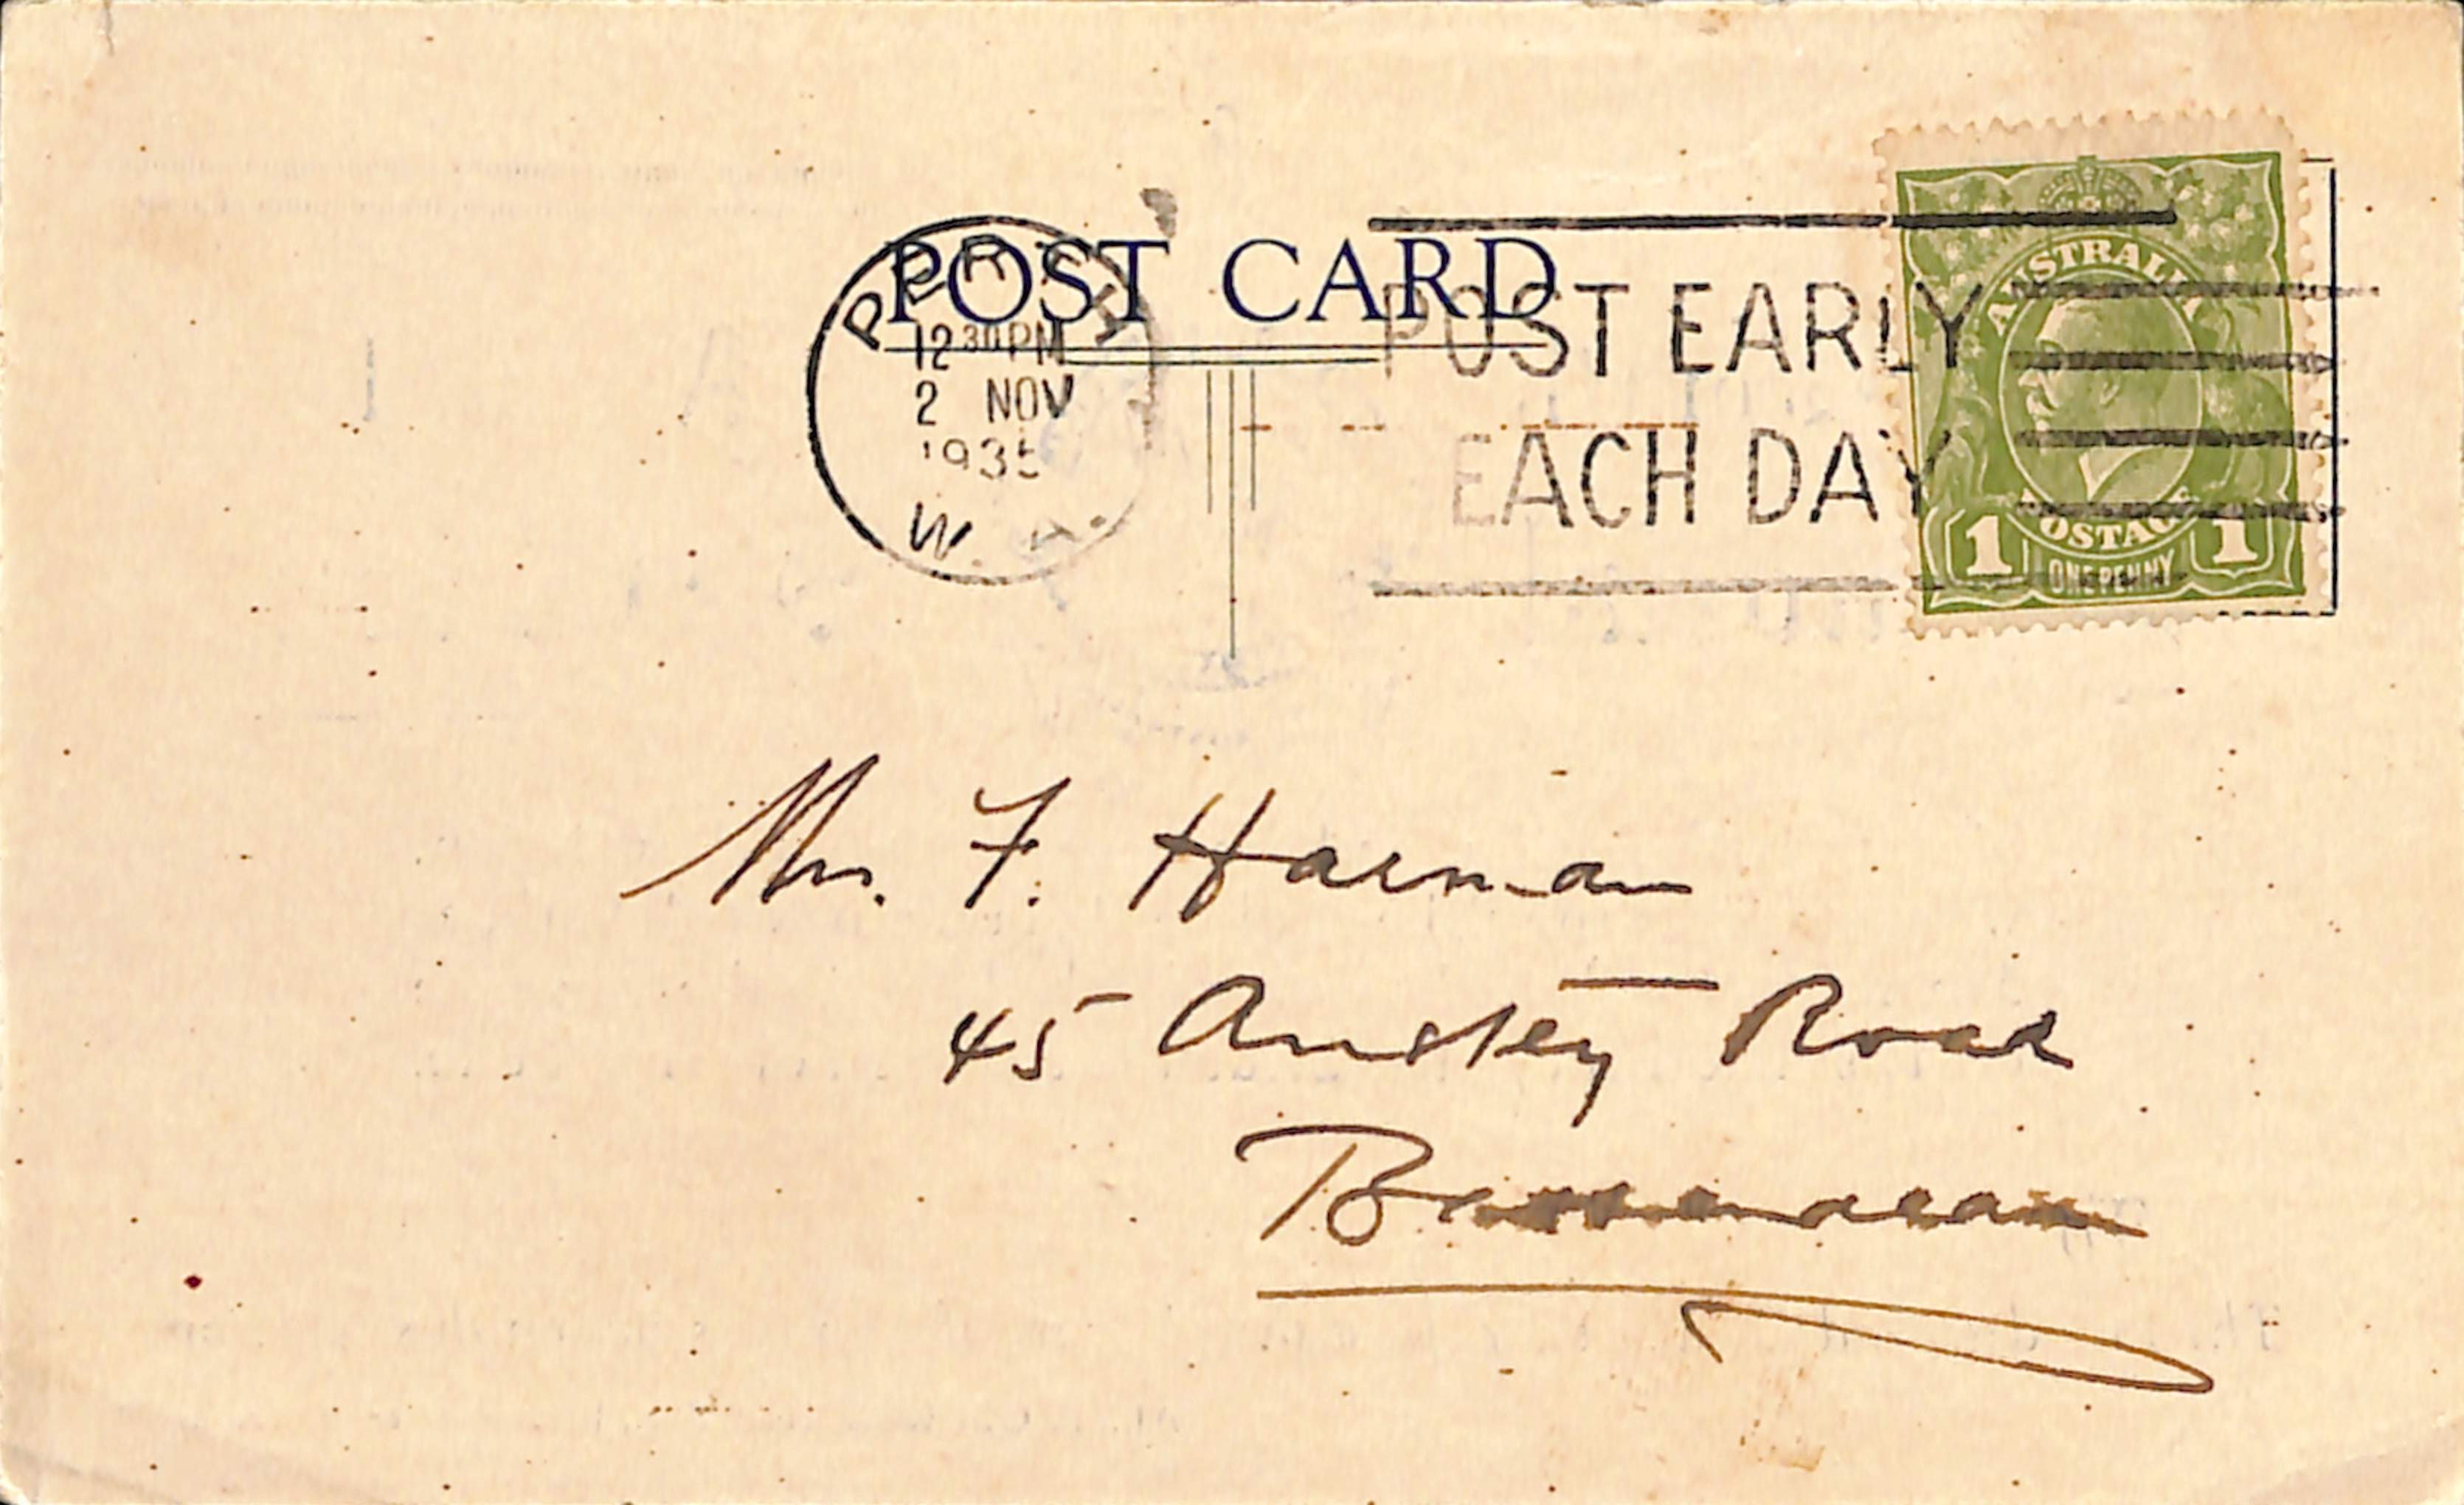 POST CARD
PERTH
12 30 PM
2 NOV
1935
W. A.
POST EARLY
EACH DAY
AUSTRALIA
POSTAGE
1 ONE PENNY 1
Mr. F. Harman
45 Anstey Road
Bassendean